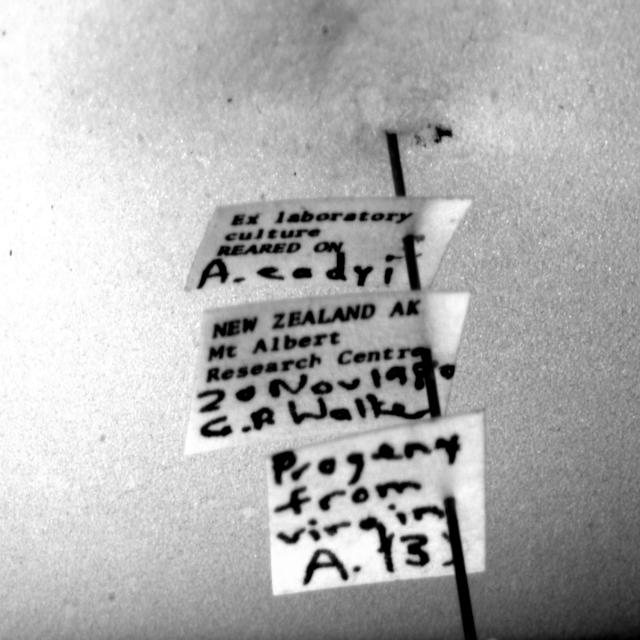 Ex laboratory
culture
REARED ON
A. eadyi
NEW ZEALAND AK
Mt Albert
Research Centre
20 Nov 1980
G.P. Walker
Progeny
from
virgin
A. (3)